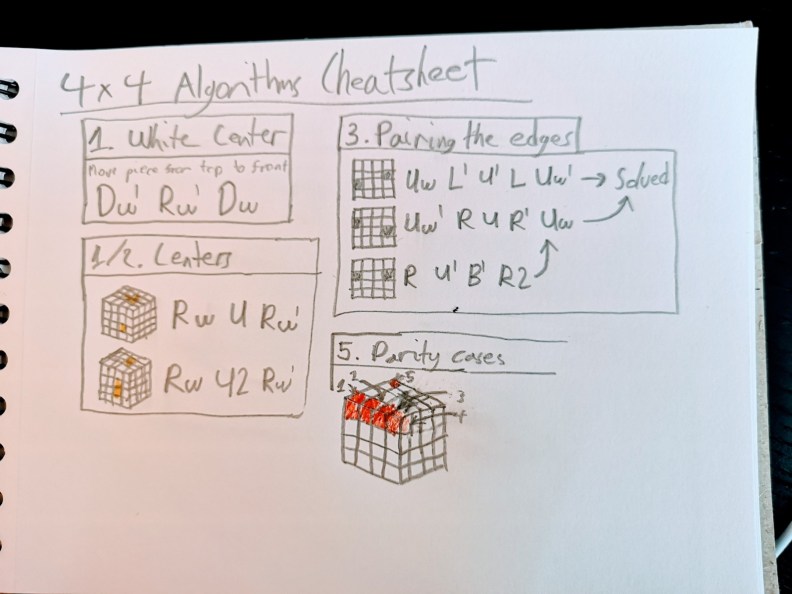 4x4 Algorithms Cheatsheet
1. White Center
Move piece from top to front
Dw' Rw' Dw
1/2. Centers
Rw U Rw'
Rw U2 Rw'
3. Pairing the edges
Uw L' U' L Uw' → Solved
Uw' R U R' Uw
R U' B' R2
5. Parity cases
1 2 5
3
4